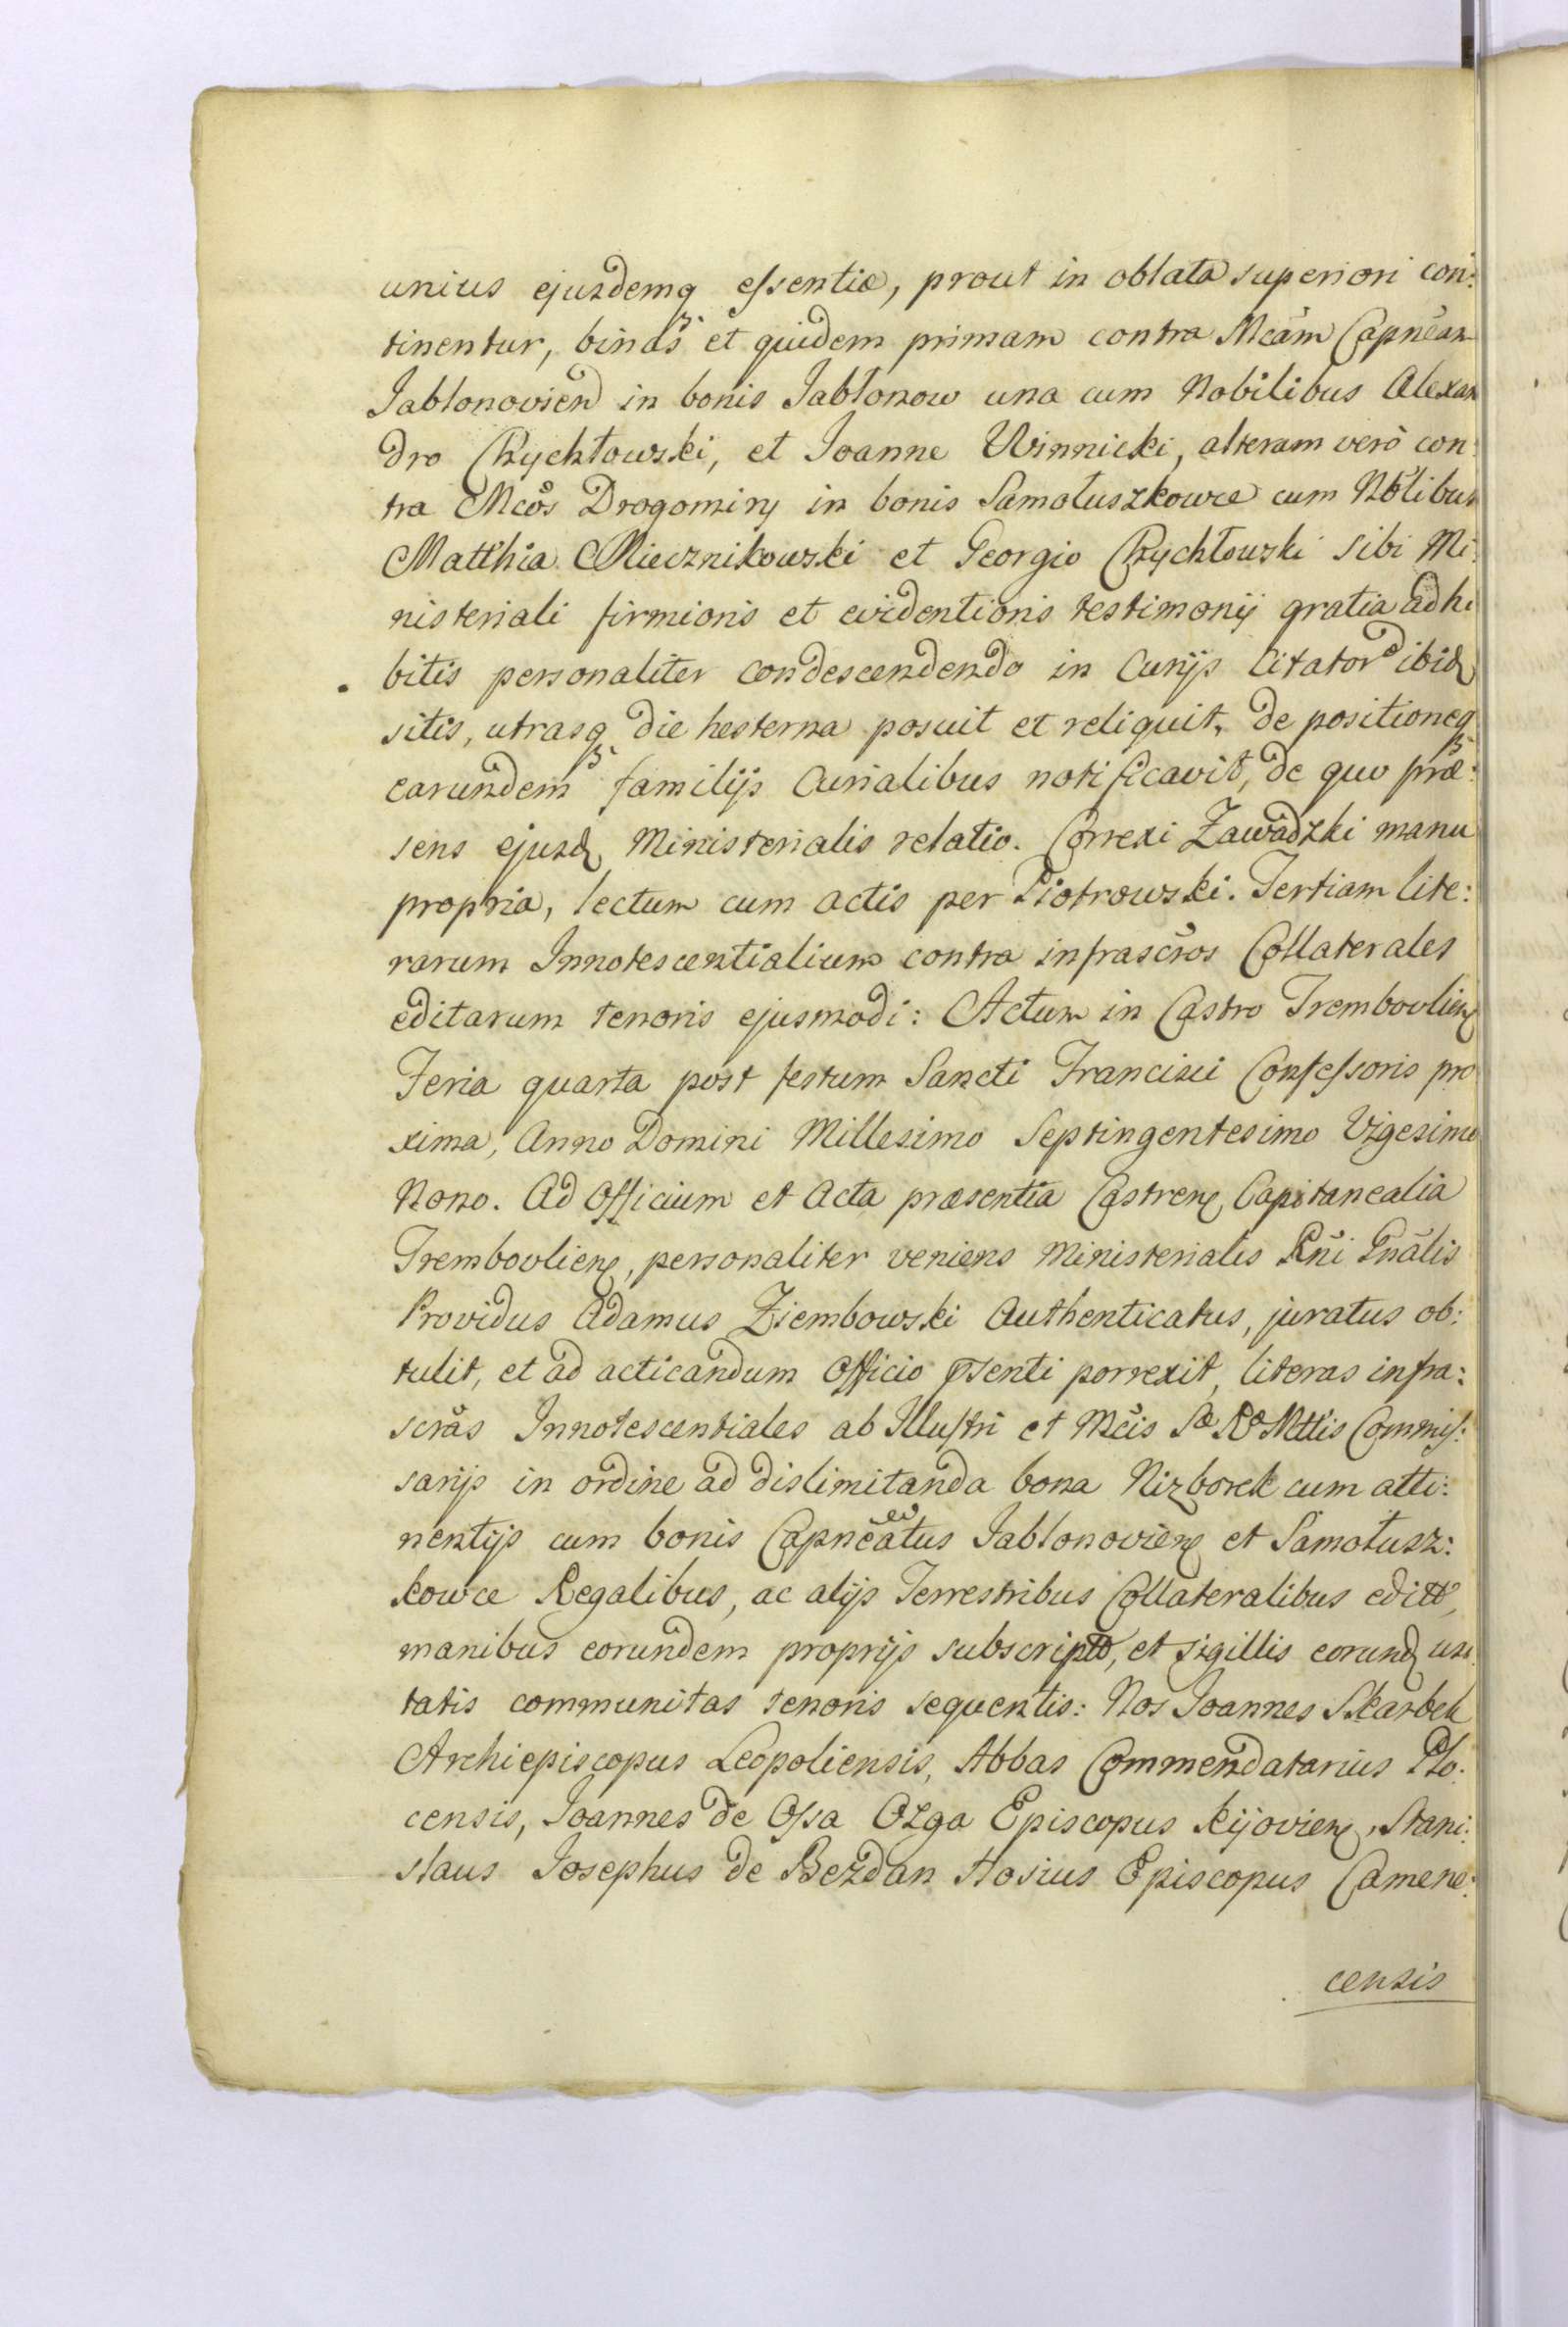 unius ejusdemq̃ eſsentiæ, prout in oblata superiori con:
tinentur, binas et quidem primam contra Mcãm Capnẽam
Jablonovien in bonis Jabłonow una cum Nobilibus Alexan
dro Rychłowski, et Joanne Winnicki, alteram verò con:
tra Mcõs Drogomiry in bonis Samołuszkowce cum Nõlibus
Matthia Miecznikowski et Georgio Rychłowski sibi Mi:
nisteriali firmioris et evidentioris testimonij gratia adhi
bitis personaliter condescendendo in Curijs Citator ibid
sitis, utrasq̃ die hesterna posuit et reliquit, de positioneq̃
earundem familijs Curialibus notificavit, de quo præ:
sens ejusd Ministerialis relatio. Correxi Zawadzki manu
propria, lectum cum actis per Piotrowski. Tertiam lite:
rarum Innotescentialium contra infrascr̃os Collaterales
editarum tenoris ejusmodi: Actum in Castro Trembovlien
Feria quarta post festum Sancti Francisci Confeſsoris pro
xima, Anno Domini Millesimo Septingentesimo Vigesimo
Nono. Ad Officium et Acta præsentia Castren Capitanealia
Trembovlien, personaliter veniens Ministerialis Rñi Gnãlis
Providus Adamus Ziembowski Authenticatus, juratus ob:
tulit, et ad acticandum Officio p̃senti porrexit, literas infra:
scr̃as Innotescentiales ab Illustri et Mcis Sæ Ræ Mttis Commiſ:
sarijs in ordine ad dislimitanda bona Nizborek cum atti:
nentijs cum bonis Capnẽatus Jablonovien et Samołusz:
kowce Regalibus, ac alijs Terrestribus Collateralibus editt,
manibus eorundem proprijs subscriptt, et sigillis eorund usi
tatis communitas tenoris sequentis: Nos Joannes Skarbek
Archiepiscopus Leopoliensis, Abbas Commendatarius Plo:
censis, Joannes de Oſsa Ożga Episcopus Kijovien, Stani:
slaus Josephus de Bezdan Hosius Episcopus Camene:
censis